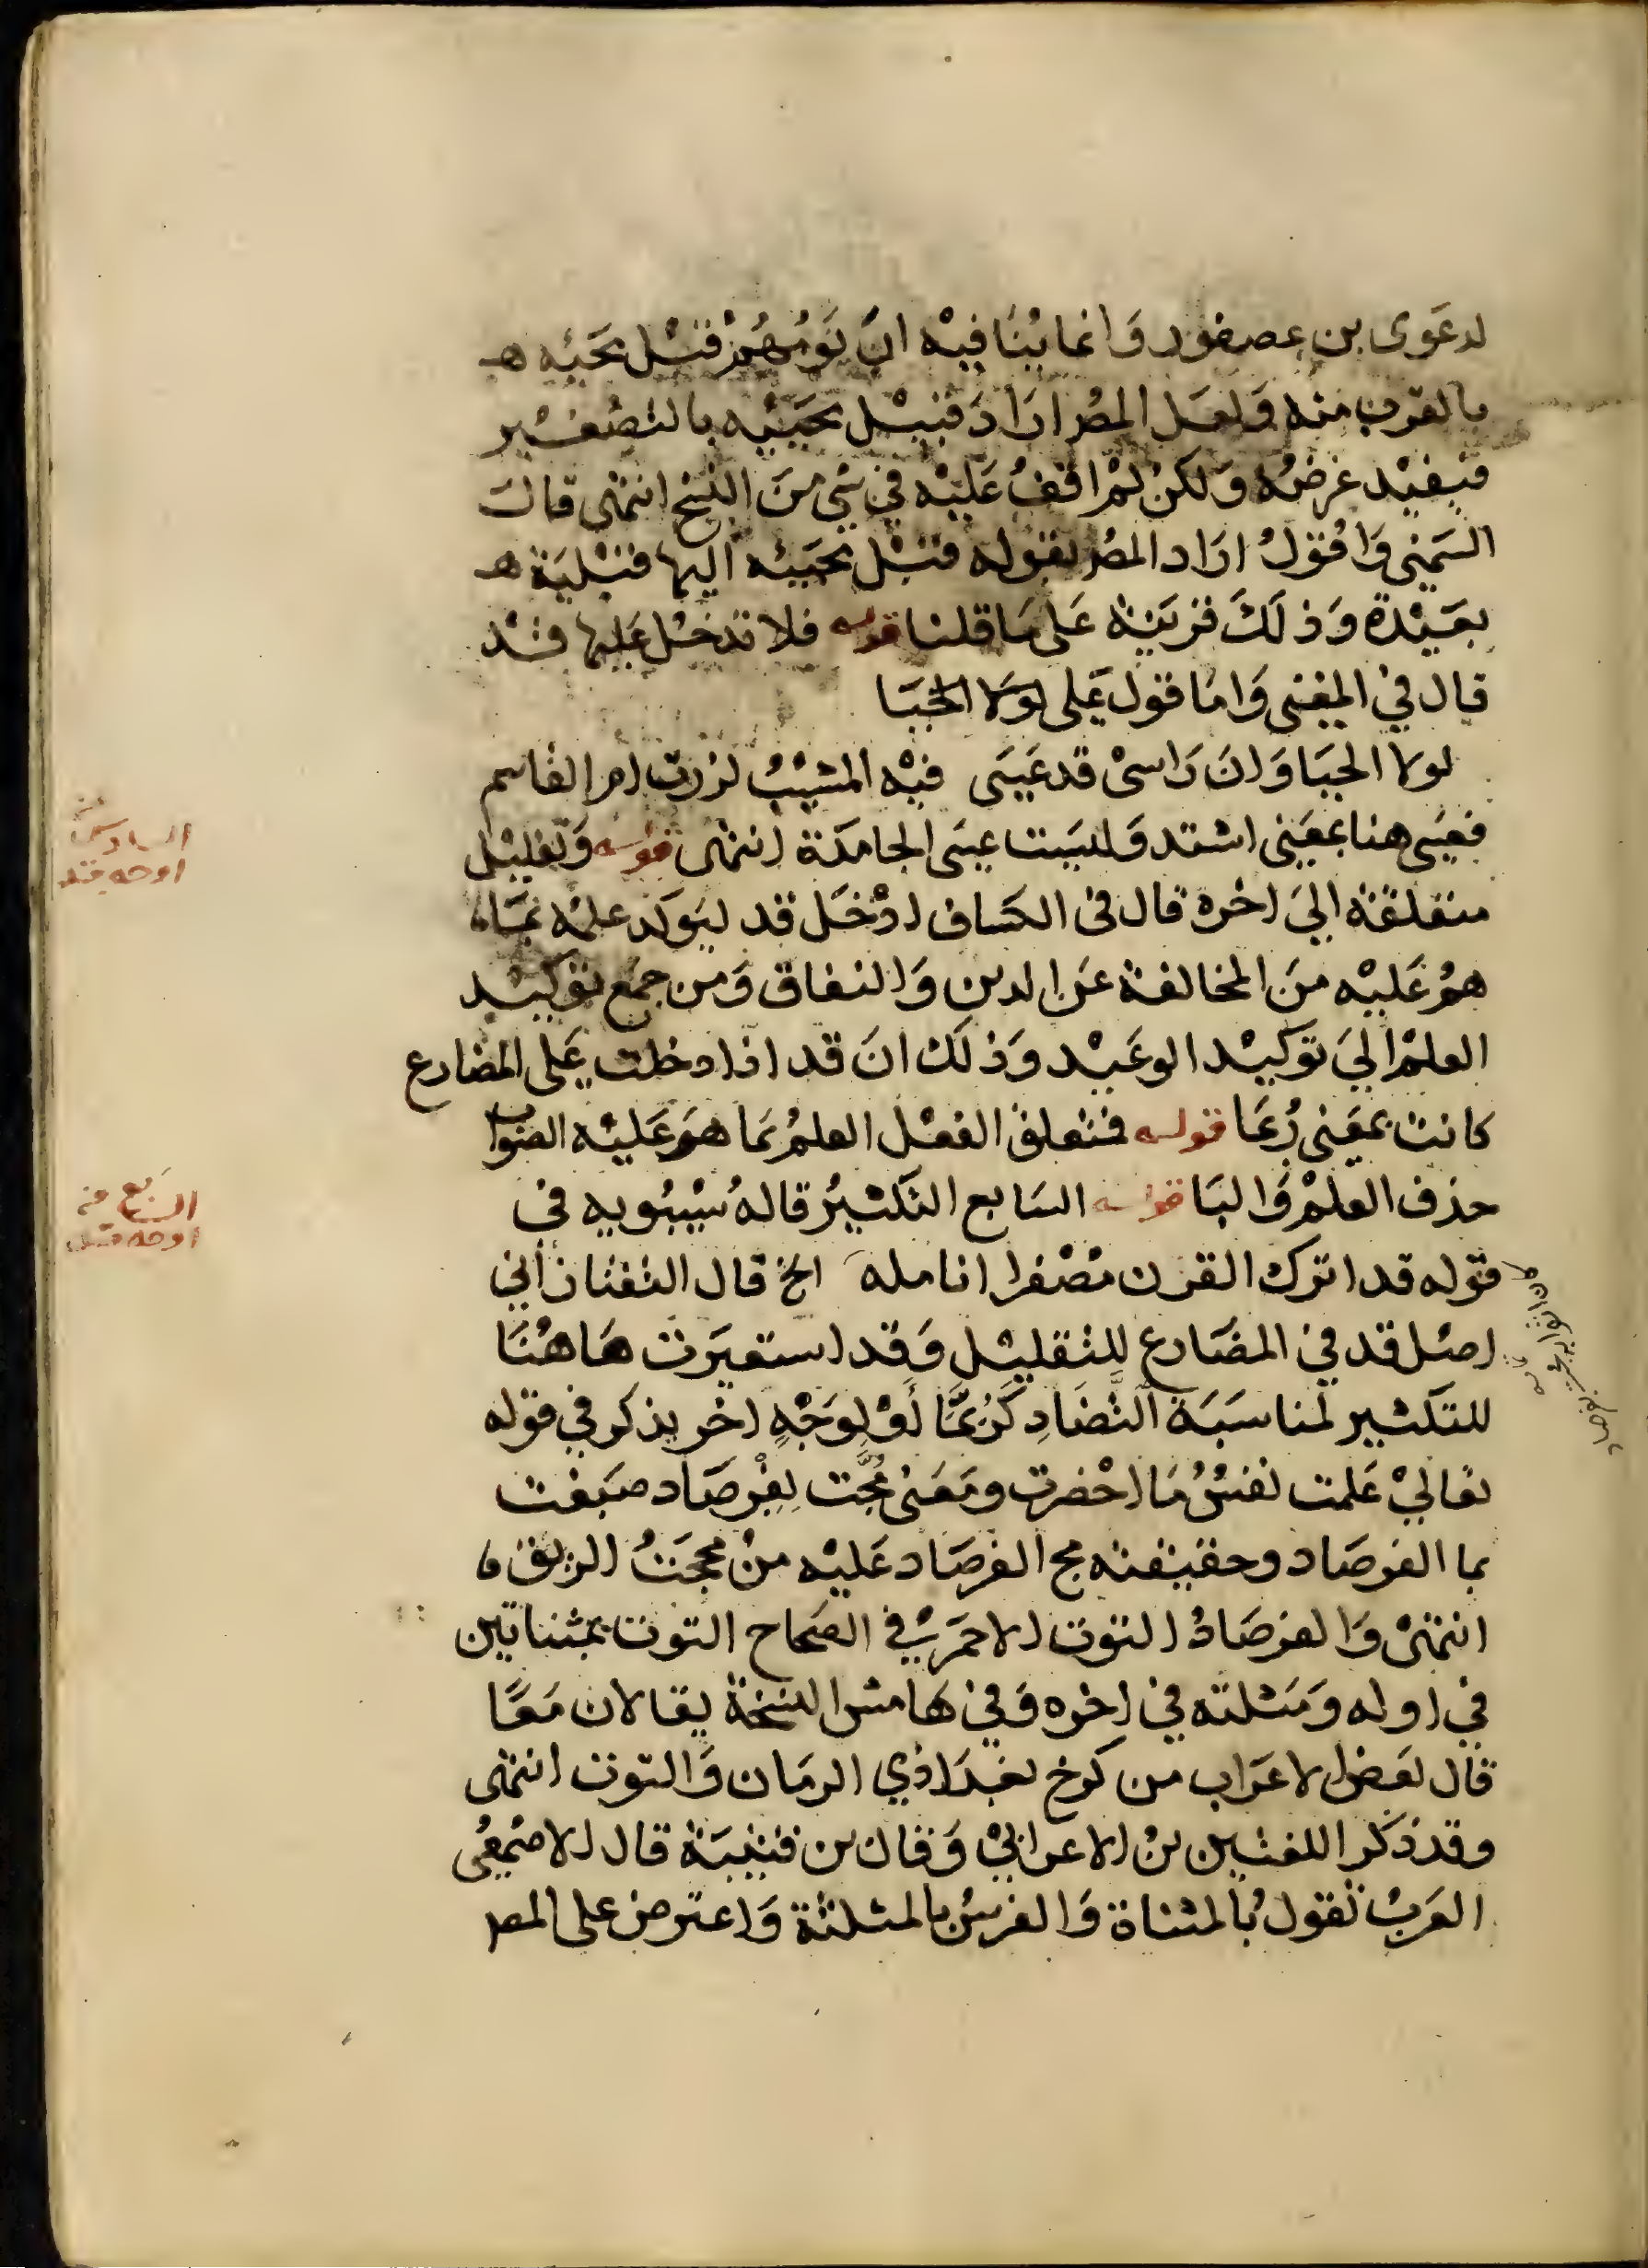 لدعوى بن عصفور وانما ينافيه ان نومهم قبل مجيئه هـ
بالقرب منه ولعل المصر اراد قبيل مجيئه بالتصغير
فيفيد غرضه ولكن لم اقف عليه في شي من النسخ انتهى قال
السمني واقول اراد المصر بقوله قبل مجيئه اليها قبلية هـ
بعيدة وذلك قرينة على ما قلنا قوله فلا تدخل عليها قد
قال في المغنى واما قول على لولا الحيا
لولا الحيا وان راسى قد عسى فيه المشيب لزرت ام القاسم
فعسى هنا بمعنى اشتد وليست عسى الجامدة انتهى قوله وتقليل
متعلقة الى اخره قال فى الكساف ادخل قد ليوكد علمه بما
هم عليه من المخالفة عن الدين والنفاق ومن جمع توكيد
العلم الى توكيد الوعيد وذلك ان قد اذا دخلت على المضارع
كانت بمعنى ربما قوله فتعلق الفعل العلم بما هم عليه الصواب
حذف العلم والبا قوله السابع التكثير قاله سيبويه في
قوله قد اترك القرن مصفرا انامله الخ قال التفتازاني
اصل قد في المضارع للتقليل وقد استعيرت هاهنا
للتكثير لمناسبة التضاد كربما او لوجه اخر يذكر في قوله
تعالى علمت نفس ما احضرت ومعنى مجت بفرصاد صبغت
بما الفرصاد وحقيقته مج الفرصاد عليه من مججت الريق
انتهى والفرصاد التوت الاحمر في الصحاح التوت بمثناتين
في اوله ومثلته في اخره وفي هامش النسخة يقالان معا
قال بعض الاعراب من كرخ بغداذي الرمان والتوت انتهى
وقد ذكر اللغتين بن الاعرابي وقال بن قتيبة قال الاصمعى
العرب تقول بالمثناة والفرس بالمثلثة واعترض على المصر
السادس من
اوجه قد
السابع من
اوجه قد